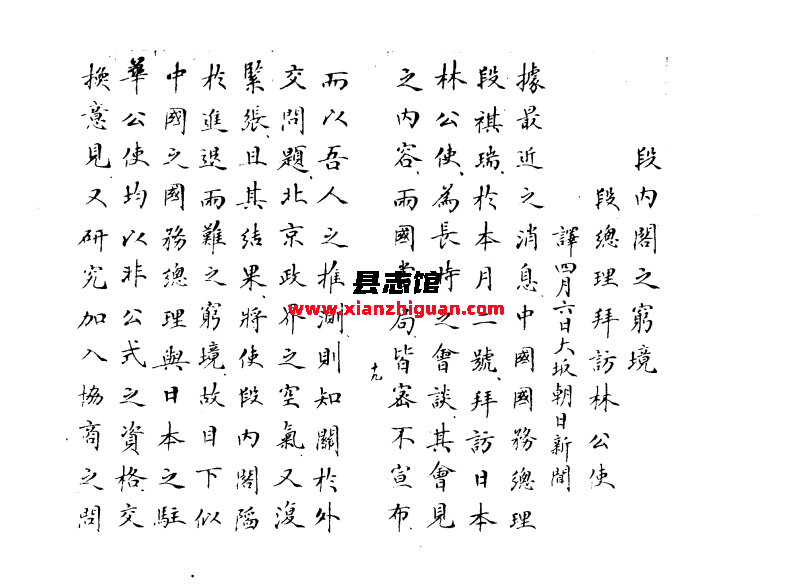 段內閣之窮境
段總理拜訪林公使
譯四月六日大坂朝日新聞
據最近之消息中國國務總理
段祺瑞於本月二號拜訪日本
林公使為長時之會談其會見
之內容兩國當局皆密不宣布
十九
而以吾人之推測則知關於外
交問題北京政界之空氣又復
緊張且其結果將使段內閣陷
於進退兩難之窮境故目下似
中國之國務總理與日本之駐
華公使均以非公式之資格交
換意見又研究加入協商之問
县志馆
www.xianzhiguan.com